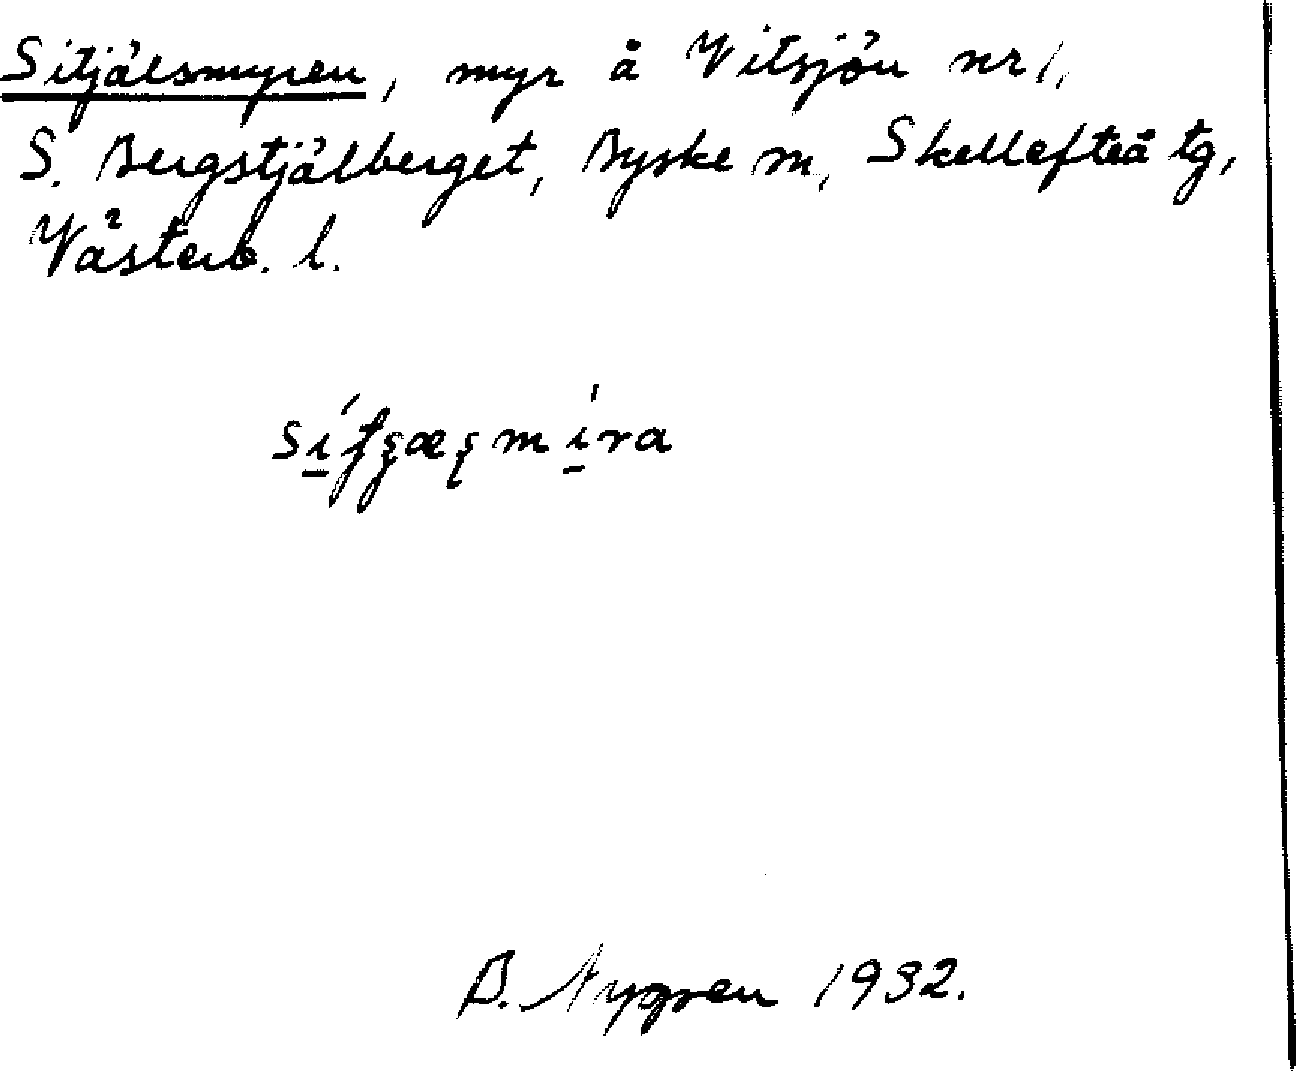 Sitjälsmyren, myr å Vitsjön nr 1,
S. Bergstjälberget, Byske m, Skellefteå tg,
Västerb. l.
B. Nygren 1932.